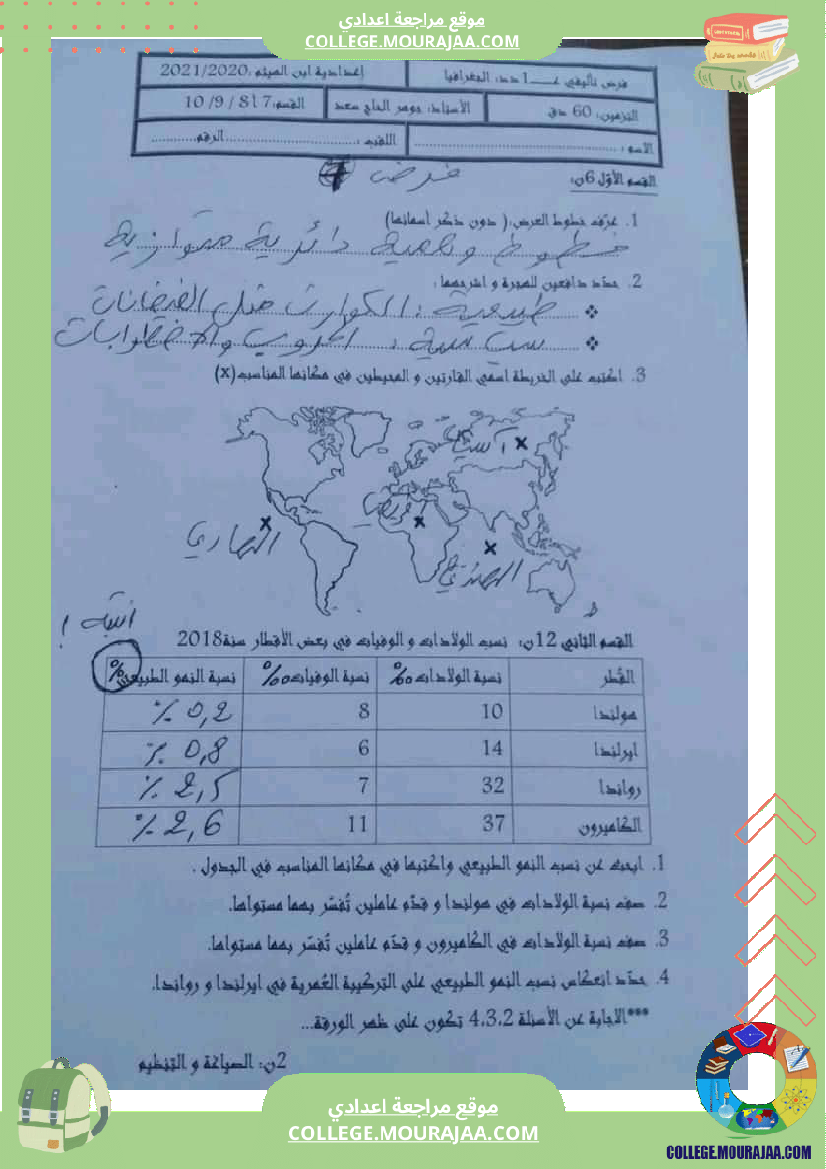 موقع مراجعة اعدادي
COLLEGE.MOURAJAA.COM
فرض تاليفي عــ1ــدد: الجغرافيا
إعدادية ابن الهيثم .2021/2020
التزمين: 60 دق
الأستاذ: جوهر الحاج سعد
القسم: 7 أ 8 / 9/ 10
الاسم :
اللقب : الرقم
القسم الأوّل 6ن:
فرض
1. عرّف خطوط العرض:( دون ذكر أسمائها)
خطوط وهمية دائرية متوازية
2. حدّد دافعين للهجرة و اشرحهما :
❖ طبيعية : الكوارث مثل الفيضانات
❖ سياسية : الحروب والاضطرابات
3. اكتب على الخريطة اسمي القارتين و المحيطين في مكانها المناسب(x)
آسيا x
x
x
الهادي
x
الهندي
انتبه !
القسم الثاني 12ن: نسب الولادات و الوفيات في بعض الأقطار سنة2018
القُطر نسبة الولادات ‰ نسبة الوفيات ‰ نسبة النمو الطبيعي %
هولندا 10 8 0,2 %
ايرلندا 14 6 0,8 %
رواندا 32 7 2,5 %
الكاميرون 37 11 2,6 %
1. ابحث عن نسب النمو الطبيعي واكتبها في مكانها المناسب في الجدول .
2. صف نسبة الولادات في هولندا و قدّم عاملين تُفسّر بهما مستواها.
3. صف نسبة الولادات في الكاميرون و قدّم عاملين تُفسّر بهما مستواها.
4. حدّد انعكاس نسب النمو الطبيعي على التركيبة العُمرية في ايرلندا و رواندا.
***الاجابة عن الأسئلة 4،3،2 تكون على ظهر الورقة...
2ن: الصياغة و التنظيم
موقع مراجعة اعدادي
COLLEGE.MOURAJAA.COM
COLLEGE.MOURAJAA.COM